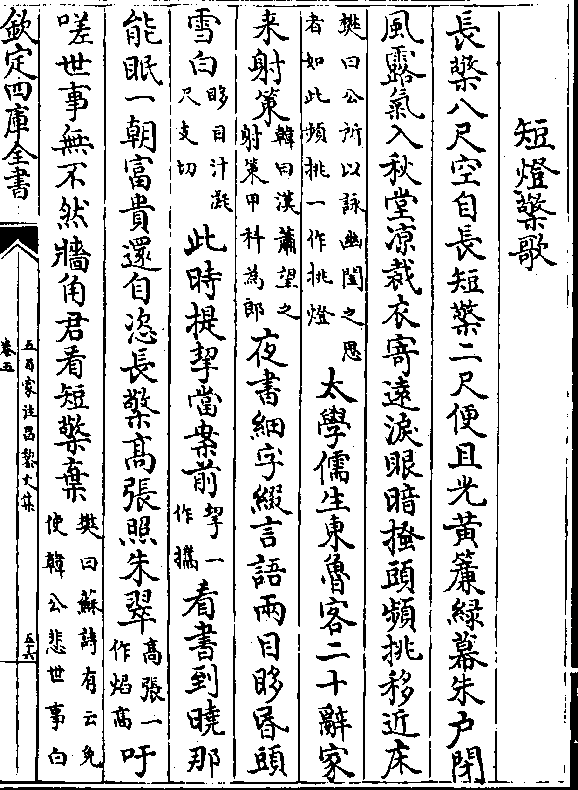 短燈檠歌
長檠八尺空自長短檠二尺便且光黃簾綠幕朱户閉
風露氣入秋堂凉裁衣寄遠淚眼暗搔頭頻挑移近床
樊曰公所以詠幽閨之思
者如此頻挑一作挑燈
太學儒生東魯客二十辭家
来射策
韓曰漢蕭望之
射策甲科為郎
夜書細字綴言語兩目眵昏頭
雪白
眵目汁凝
尺支切
此時提挈當案前
挈一
作攜
看書到曉那
能眠一朝富貴還自恣長檠髙張照朱翠
髙張一
作焰髙
吁
嗟世事無不然牆角君看短檠棄
樊曰蘇詩有云免
使韓公悲世事白
欽定四庫全書
五百家注昌黎文集
卷五
五六